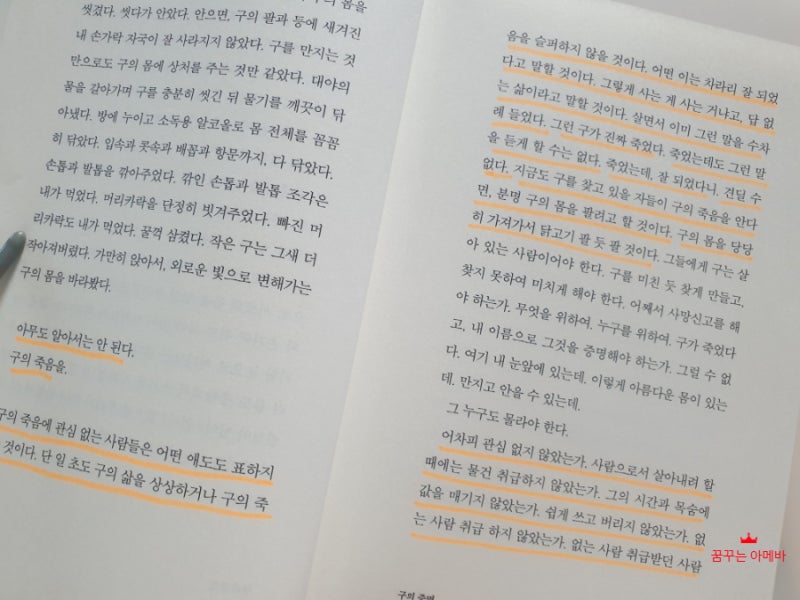 구의 몸을
씻겼다. 씻다가 안았다. 안으면, 구의 팔과 등에 새겨진
내 손가락 자국이 잘 사라지지 않았다. 구를 만지는 것
만으로도 구의 몸에 상처를 주는 것만 같았다. 대야의
물을 갈아가며 구를 충분히 씻긴 뒤 물기를 깨끗이 닦
아냈다. 방에 누이고 소독용 알코올로 몸 전체를 꼼꼼
히 닦았다. 입속과 콧속과 배꼽과 항문까지, 다 닦았다.
손톱과 발톱을 깎아주었다. 깎인 손톱과 발톱 조각은
내가 먹었다. 머리카락을 단정히 빗겨주었다. 빠진 머
리카락도 내가 먹었다. 꿀꺽 삼켰다. 작은 구는 그새 더
작아져버렸다. 가만히 앉아서, 외로운 빛으로 변해가는
구의 몸을 바라봤다.
아무도 알아서는 안 된다.
구의 죽음을.
구의 죽음에 관심 없는 사람들은 어떤 애도도 표하지
것이다. 단 일 초도 구의 삶을 상상하거나 구의 죽
음을 슬퍼하지 않을 것이다. 어떤 이는 차라리 잘 되었
다고 말할 것이다. 그렇게 사는 게 사는 거냐고, 답 없
는 삶이라고 말할 것이다. 살면서 이미 그런 말을 수차
례 들었다. 그런 구가 진짜 죽었다. 죽었는데도 그런 말
을 듣게 할 수는 없다. 죽었는데, 잘 되었다니. 견딜 수
없다. 지금도 구를 찾고 있을 자들이 구의 죽음을 안다
면, 분명 구의 몸을 팔려고 할 것이다. 구의 몸을 당당
히 가져가서 닭고기 팔 듯 팔 것이다. 그들에게 구는 살
아 있는 사람이어야 한다. 구를 미친 듯 찾게 만들고,
찾지 못하여 미치게 해야 한다. 어째서 사망신고를 해
야 하는가. 무엇을 위하여. 누구를 위하여. 구가 죽었다
고, 내 이름으로 그것을 증명해야 하는가. 그럴 수 없
다. 여기 내 눈앞에 있는데. 이렇게 아름다운 몸이 있는
데. 만지고 안을 수 있는데.
그 누구도 몰라야 한다.
어차피 관심 없지 않았는가. 사람으로서 살아내려 할
때에는 물건 취급하지 않았는가. 그의 시간과 목숨에
값을 매기지 않았는가. 쉽게 쓰고 버리지 않았는가. 없
는 사람 취급 하지 않았는가. 없는 사람 취급받던 사람
구의 증명
꿈꾸는 아메바